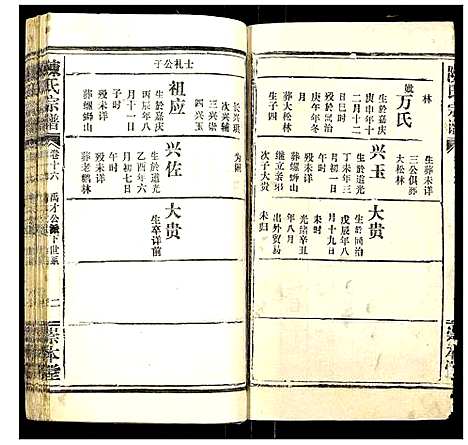 林
娍万氏
生於嘉庆
庚申年十
二月十二
日巳时
殁同治
庚午年冬
月未详
葬螺蛳山
生子四
长兴琪
次兴辅
三兴柒
四兴玉
生葬未详
三公俱葬
大松林
兴玉
生於道光
丁未年三
月初一
殁未详
葬螺蛳山
继立亲弟
次子大贵
大贵
生於同治
戊辰年八
月十九日
未时
光绪辛丑
年八月
出外贸易
未归
士礼公子
祖应
生於嘉庆
丙辰年八
月十一日
子时
殁未详
葬螺蛳山
兴佐
生於道光
乙酉年六
月初七日
殁未详
葬老鹏林
大贵
生卒详前
陈氏宗谱
卷十六
禹才公派下世系
二
崇本堂